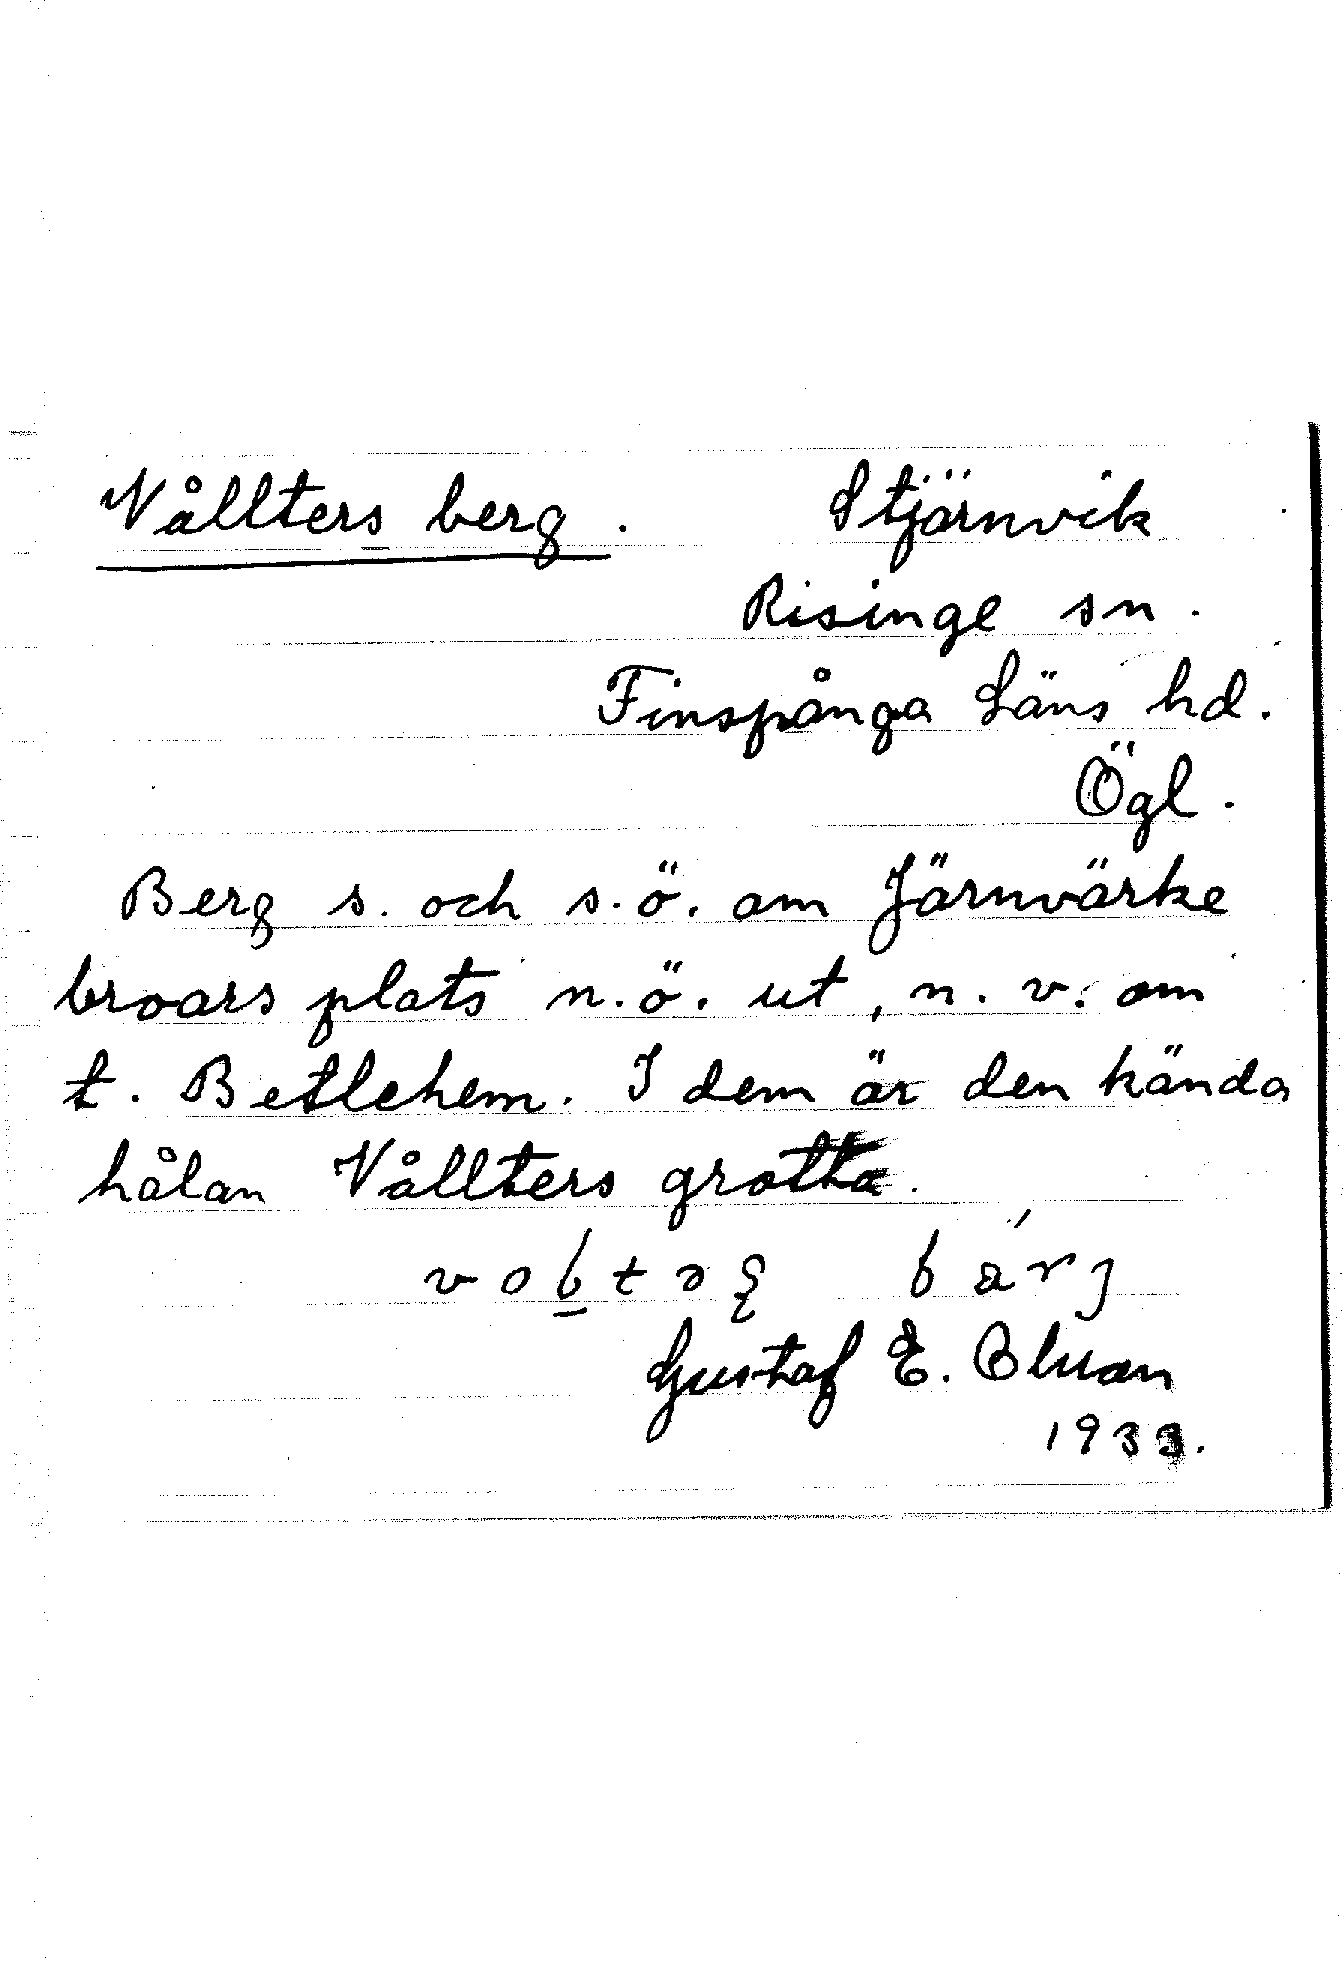 Vållters berg. Stjärnvik
Risinge sn.
Finspånga Läns hd.
Ögl.
Berg s. och s.ö. om Järnvärke
broars plats n.ö. ut, n.v. om
t. Betlehem. I dem är den kända
hålan Vållters grotta.
Gustaf E. Bluan
1933.